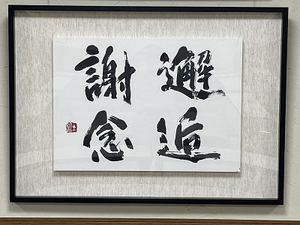 邂逅
謝念